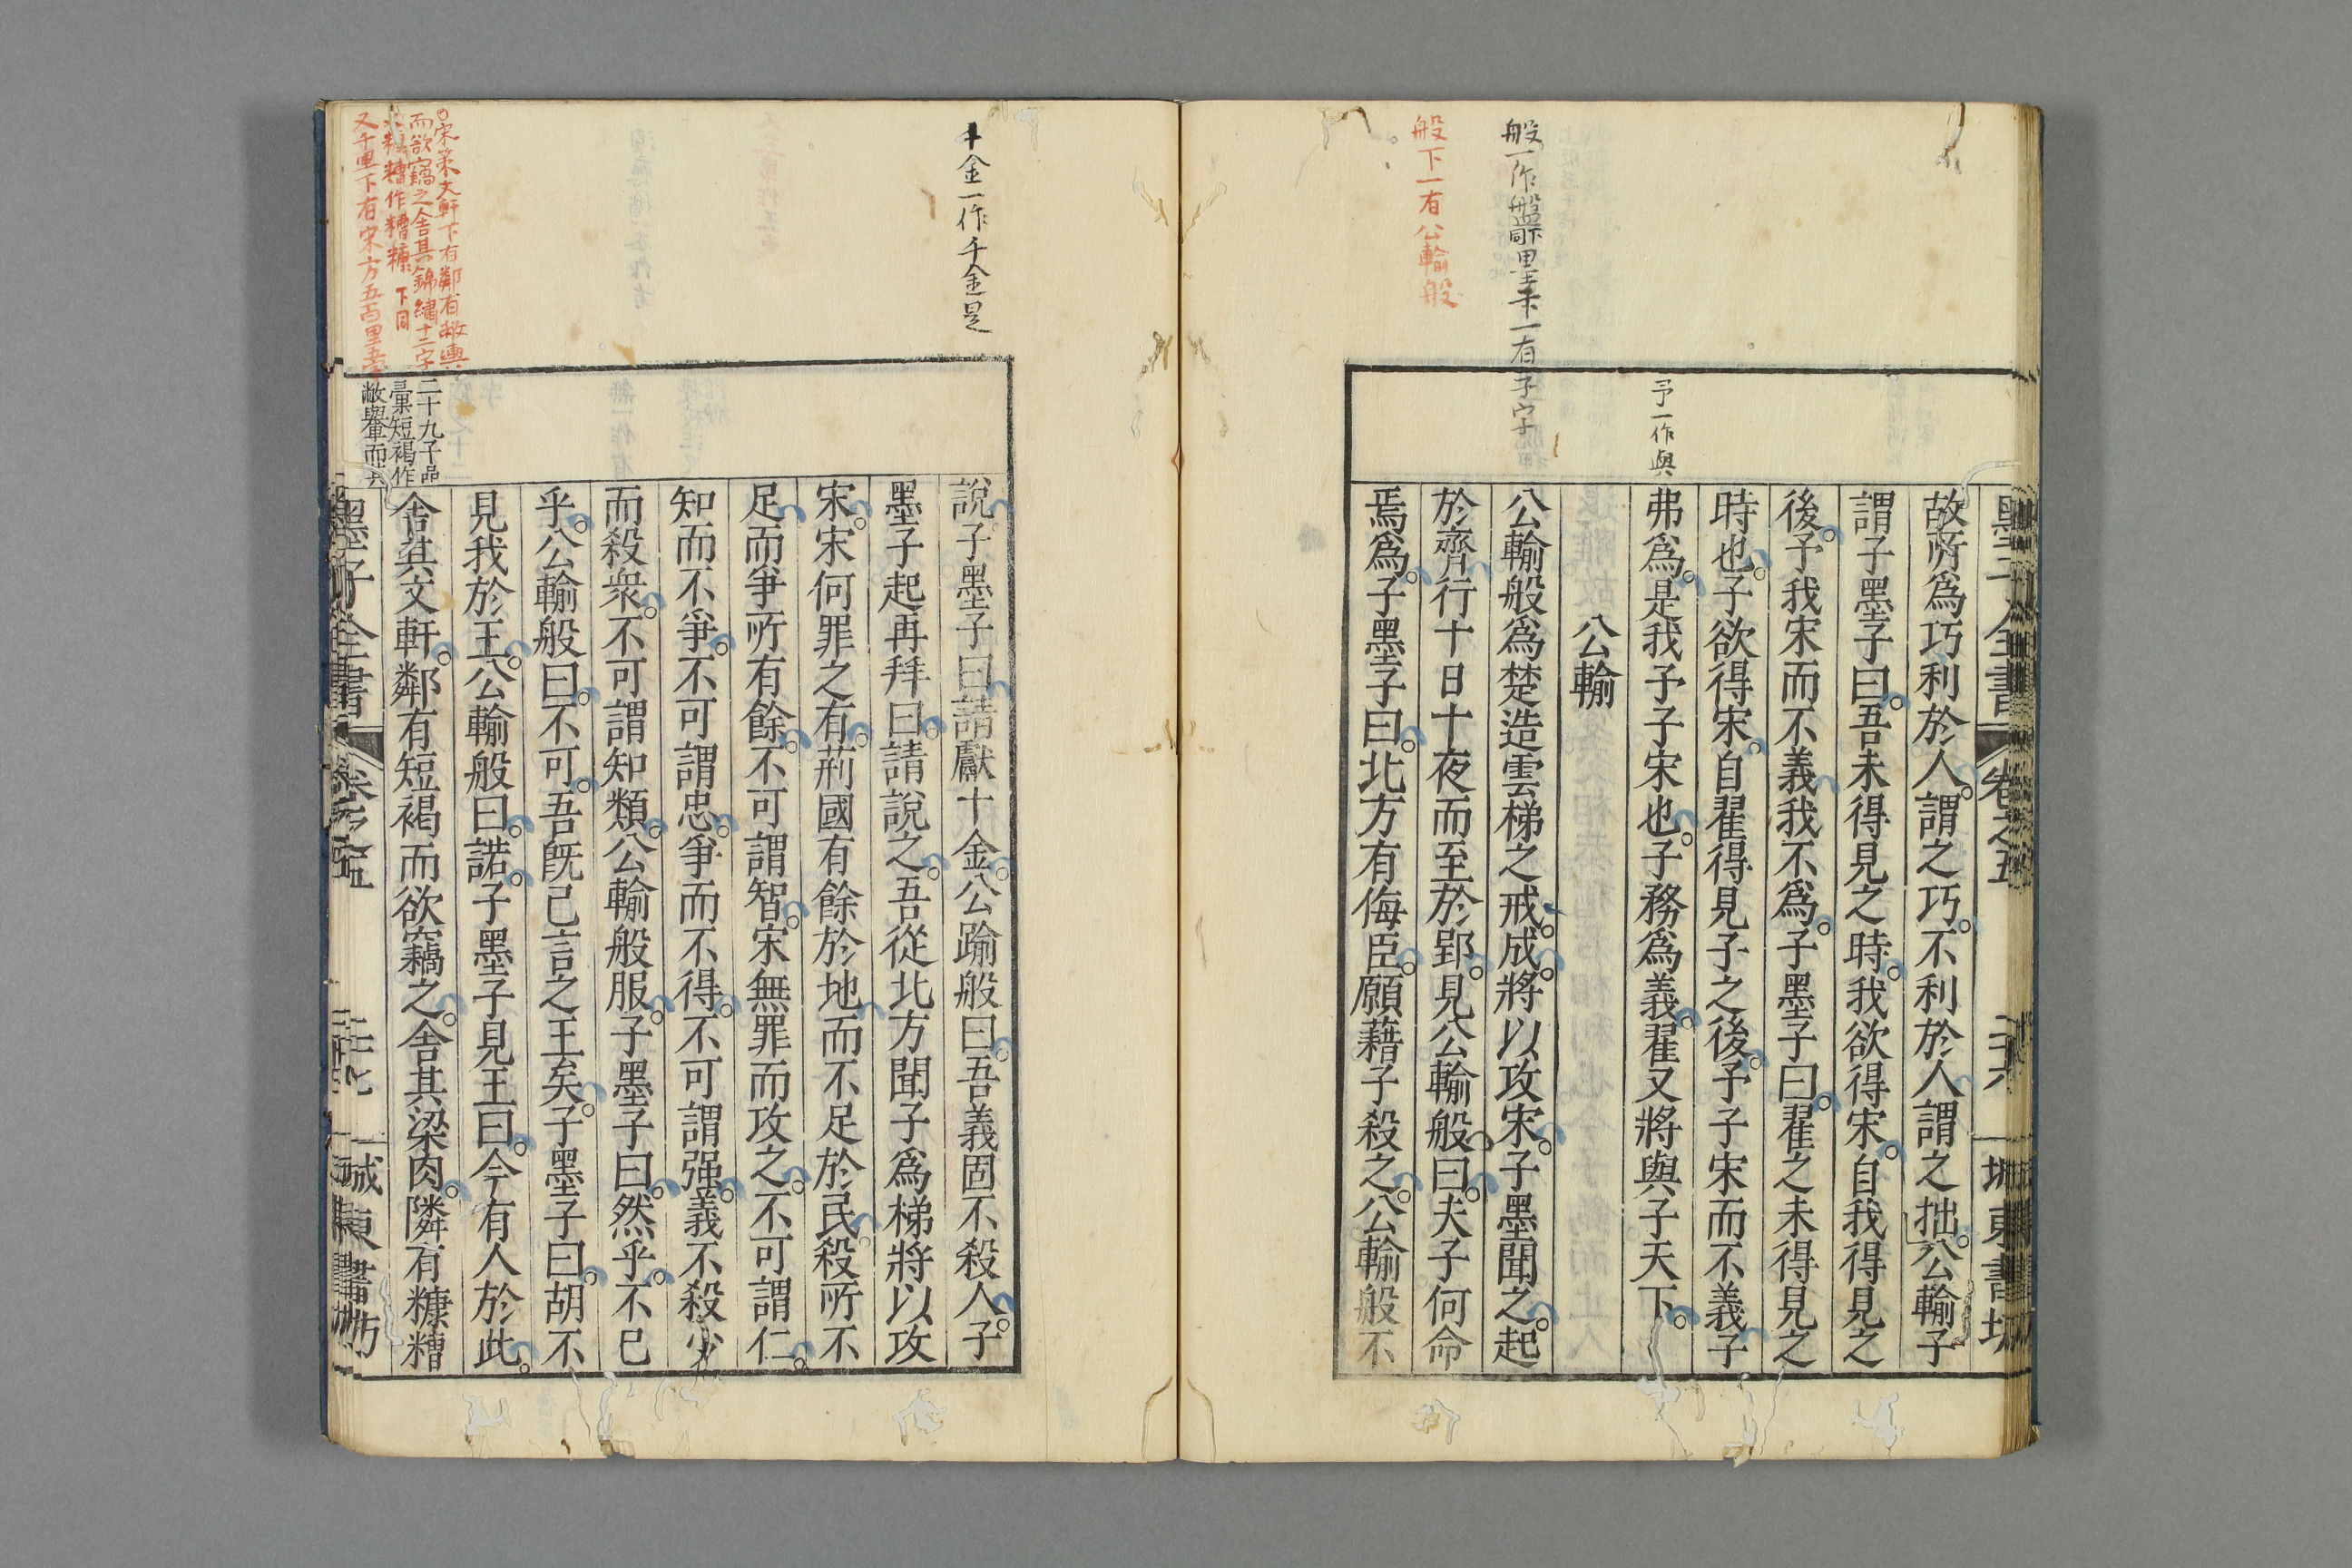 般一作盤同下墨下一有子字
般下一有公輸般
予一作與
墨子全書 卷之五 二十六 城東書坊
故所爲巧利於人謂之巧不利於人謂之拙公輸子
謂子墨子曰吾未得見之時我欲得宋自我得見之
後予我宋而不義我不爲子墨子曰翟之未得見之
時也子欲得宋自翟得見子之後予子宋而不義子
弗爲是我予子宋也子務爲義翟又將與子天下
公輸
公輸般爲楚造雲梯之戒成將以攻宋子墨聞之起
於齊行十日十夜而至於郢見公輸般曰夫子何命
焉爲子墨子曰北方有侮臣願藉子殺之公輸般不
十金一作千金是
宋策文軒下有鄰有敝輿
而欲竊之舍其錦繡十二字
糠糟作糟糠下同
又千里下有宋方五百里
二十九子品
彙短褐作
敝轝而
說子墨子曰請獻十金公踰般曰吾義固不殺人子
墨子起再拜曰請說之吾從北方聞子爲梯將以攻
宋宋何罪之有荊國有餘於地而不足於民殺所不
足而爭所有餘不可謂智宋無罪而攻之不可謂仁
知而不爭不可謂忠爭而不得不可謂强義不殺少
而殺衆不可謂知類公輸般服子墨子曰然乎不已
乎公輸般曰不可吾旣已言之王矣子墨子曰胡不
見我於王公輸般曰諾子墨子見王曰今有人於此
舍其文軒鄰有短褐而欲竊之舍其梁肉隣有糠糟
墨子全書 卷之五 城東書坊